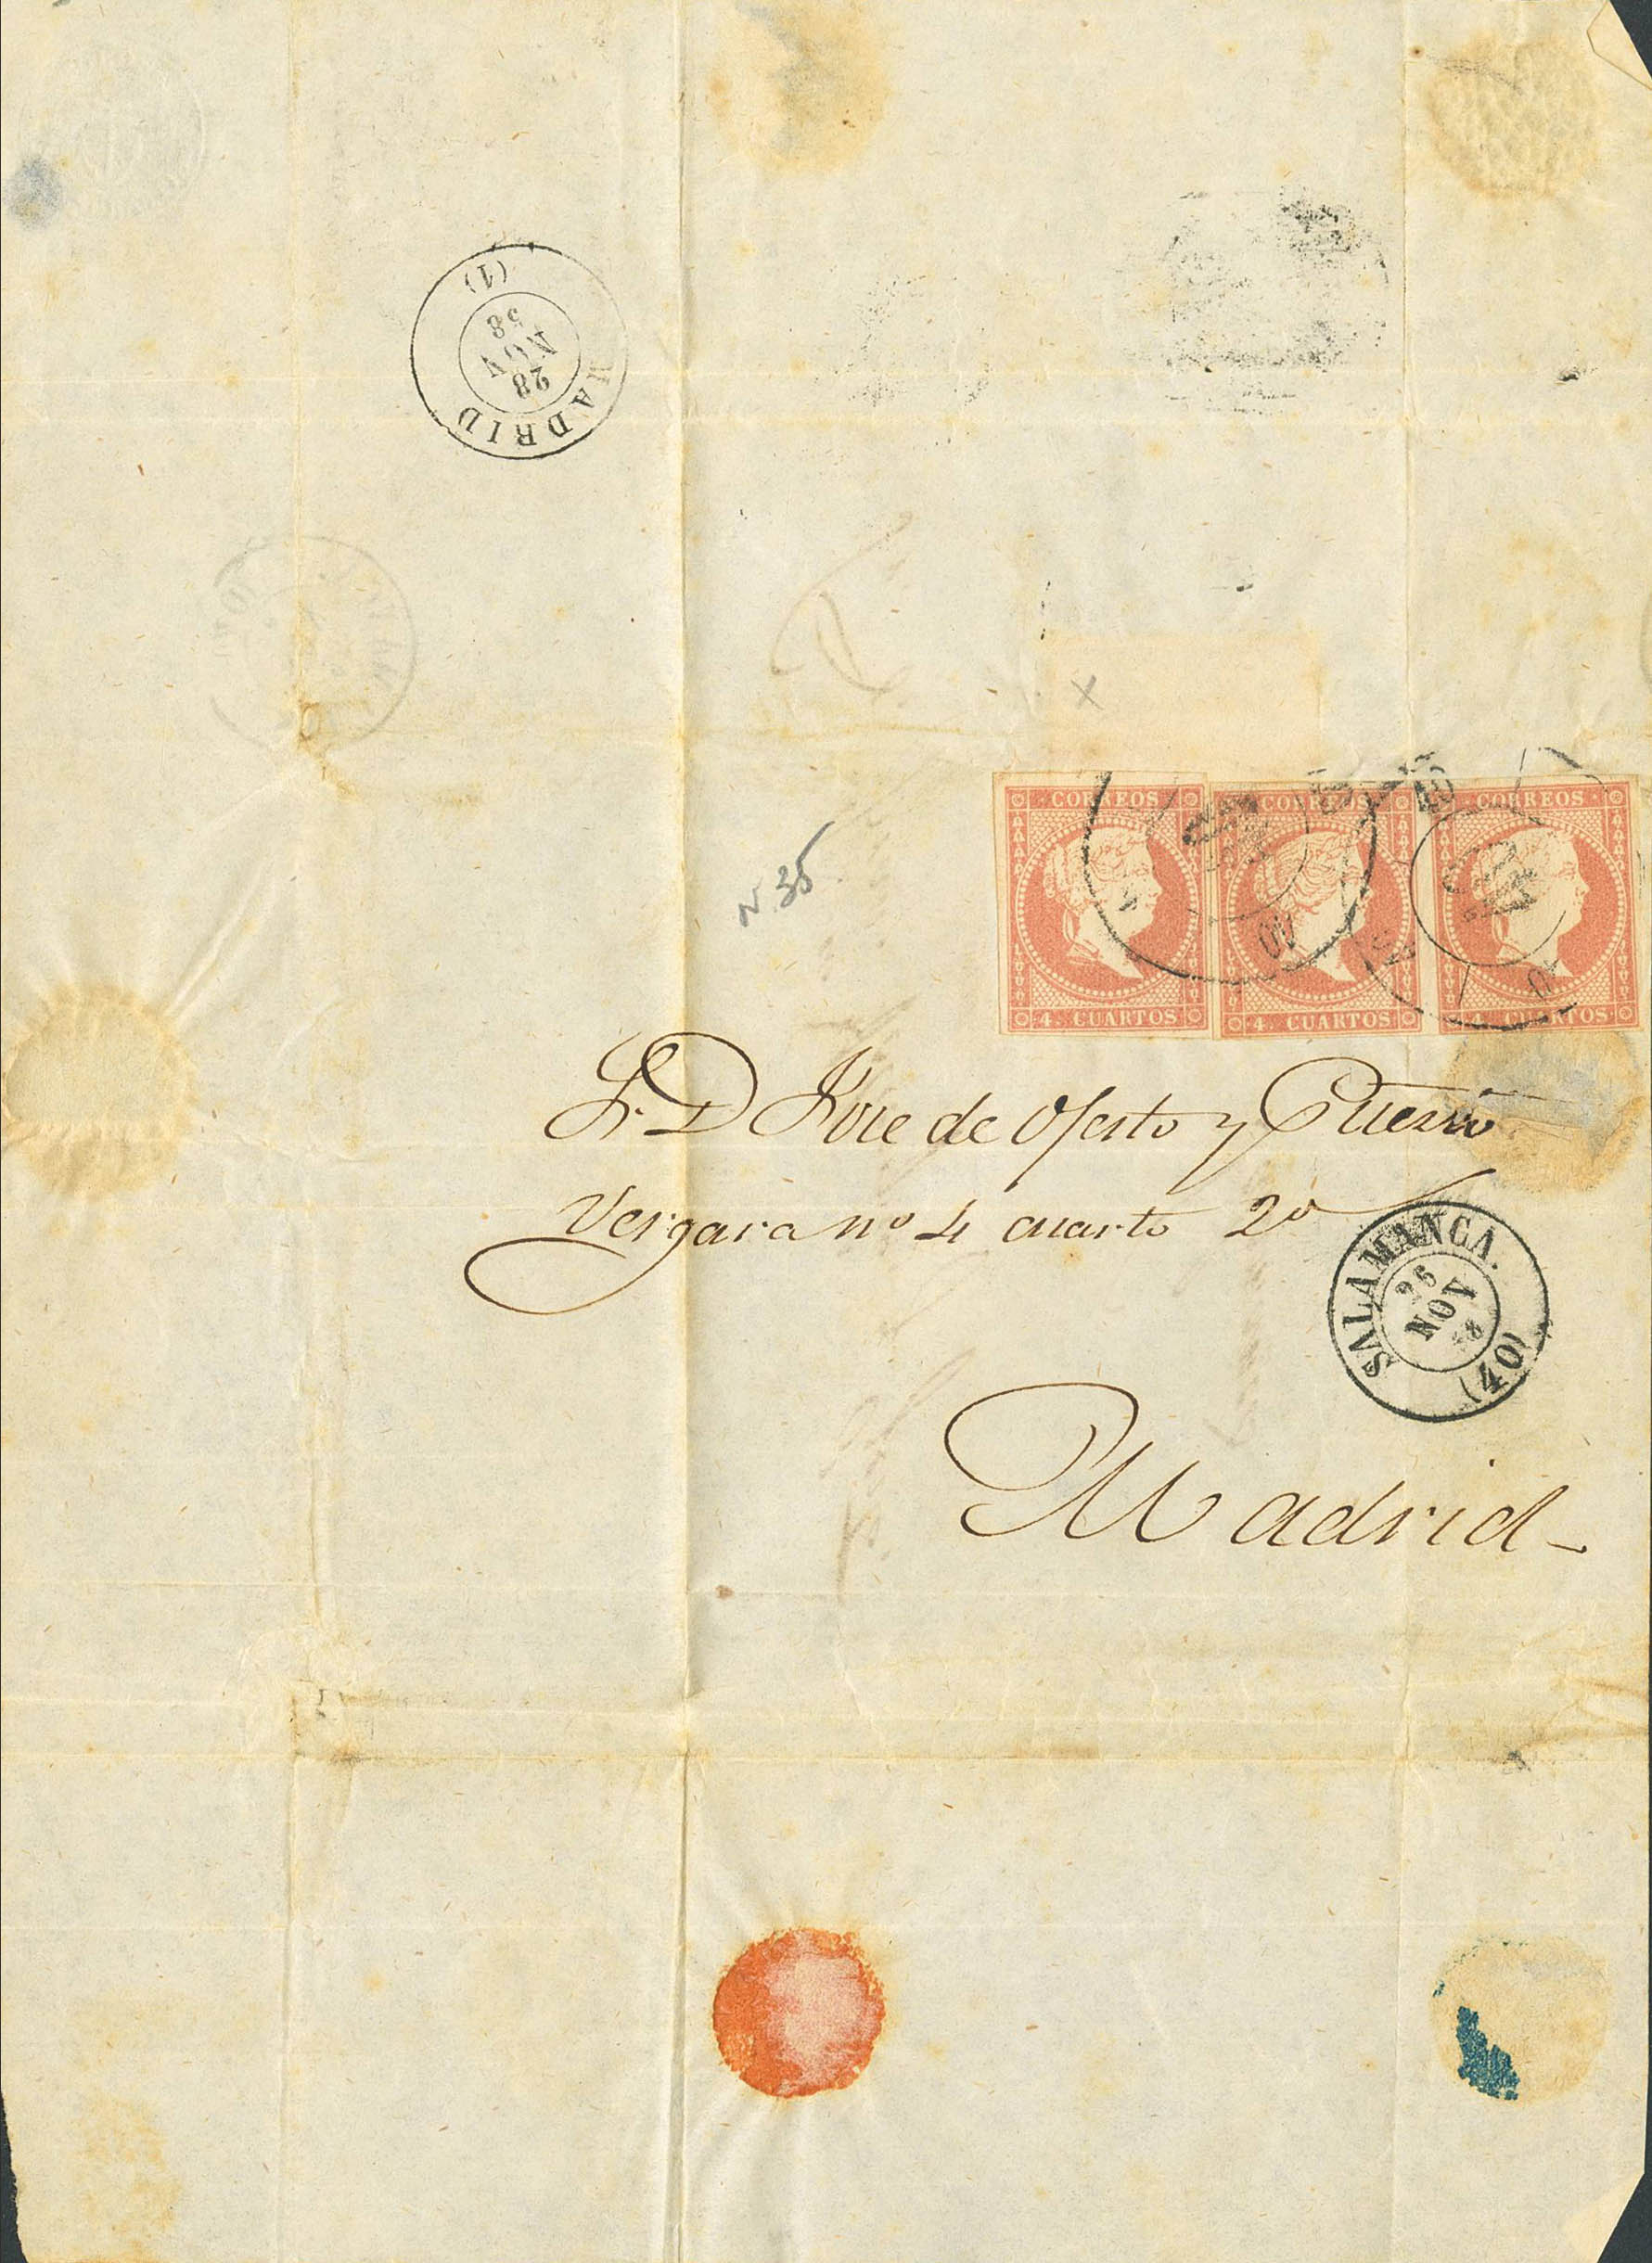 MADRID
28
NOV
58
(1)
N. 35
X
CORREOS
4. CUARTOS
CORREOS
4. CUARTOS
CORREOS
4. CUARTOS
S. D Jose de Ofesto y Puerro
Vergara nº 4 cuarto 2º
SALAMANCA.
26
NOV
58
(40)
Madrid